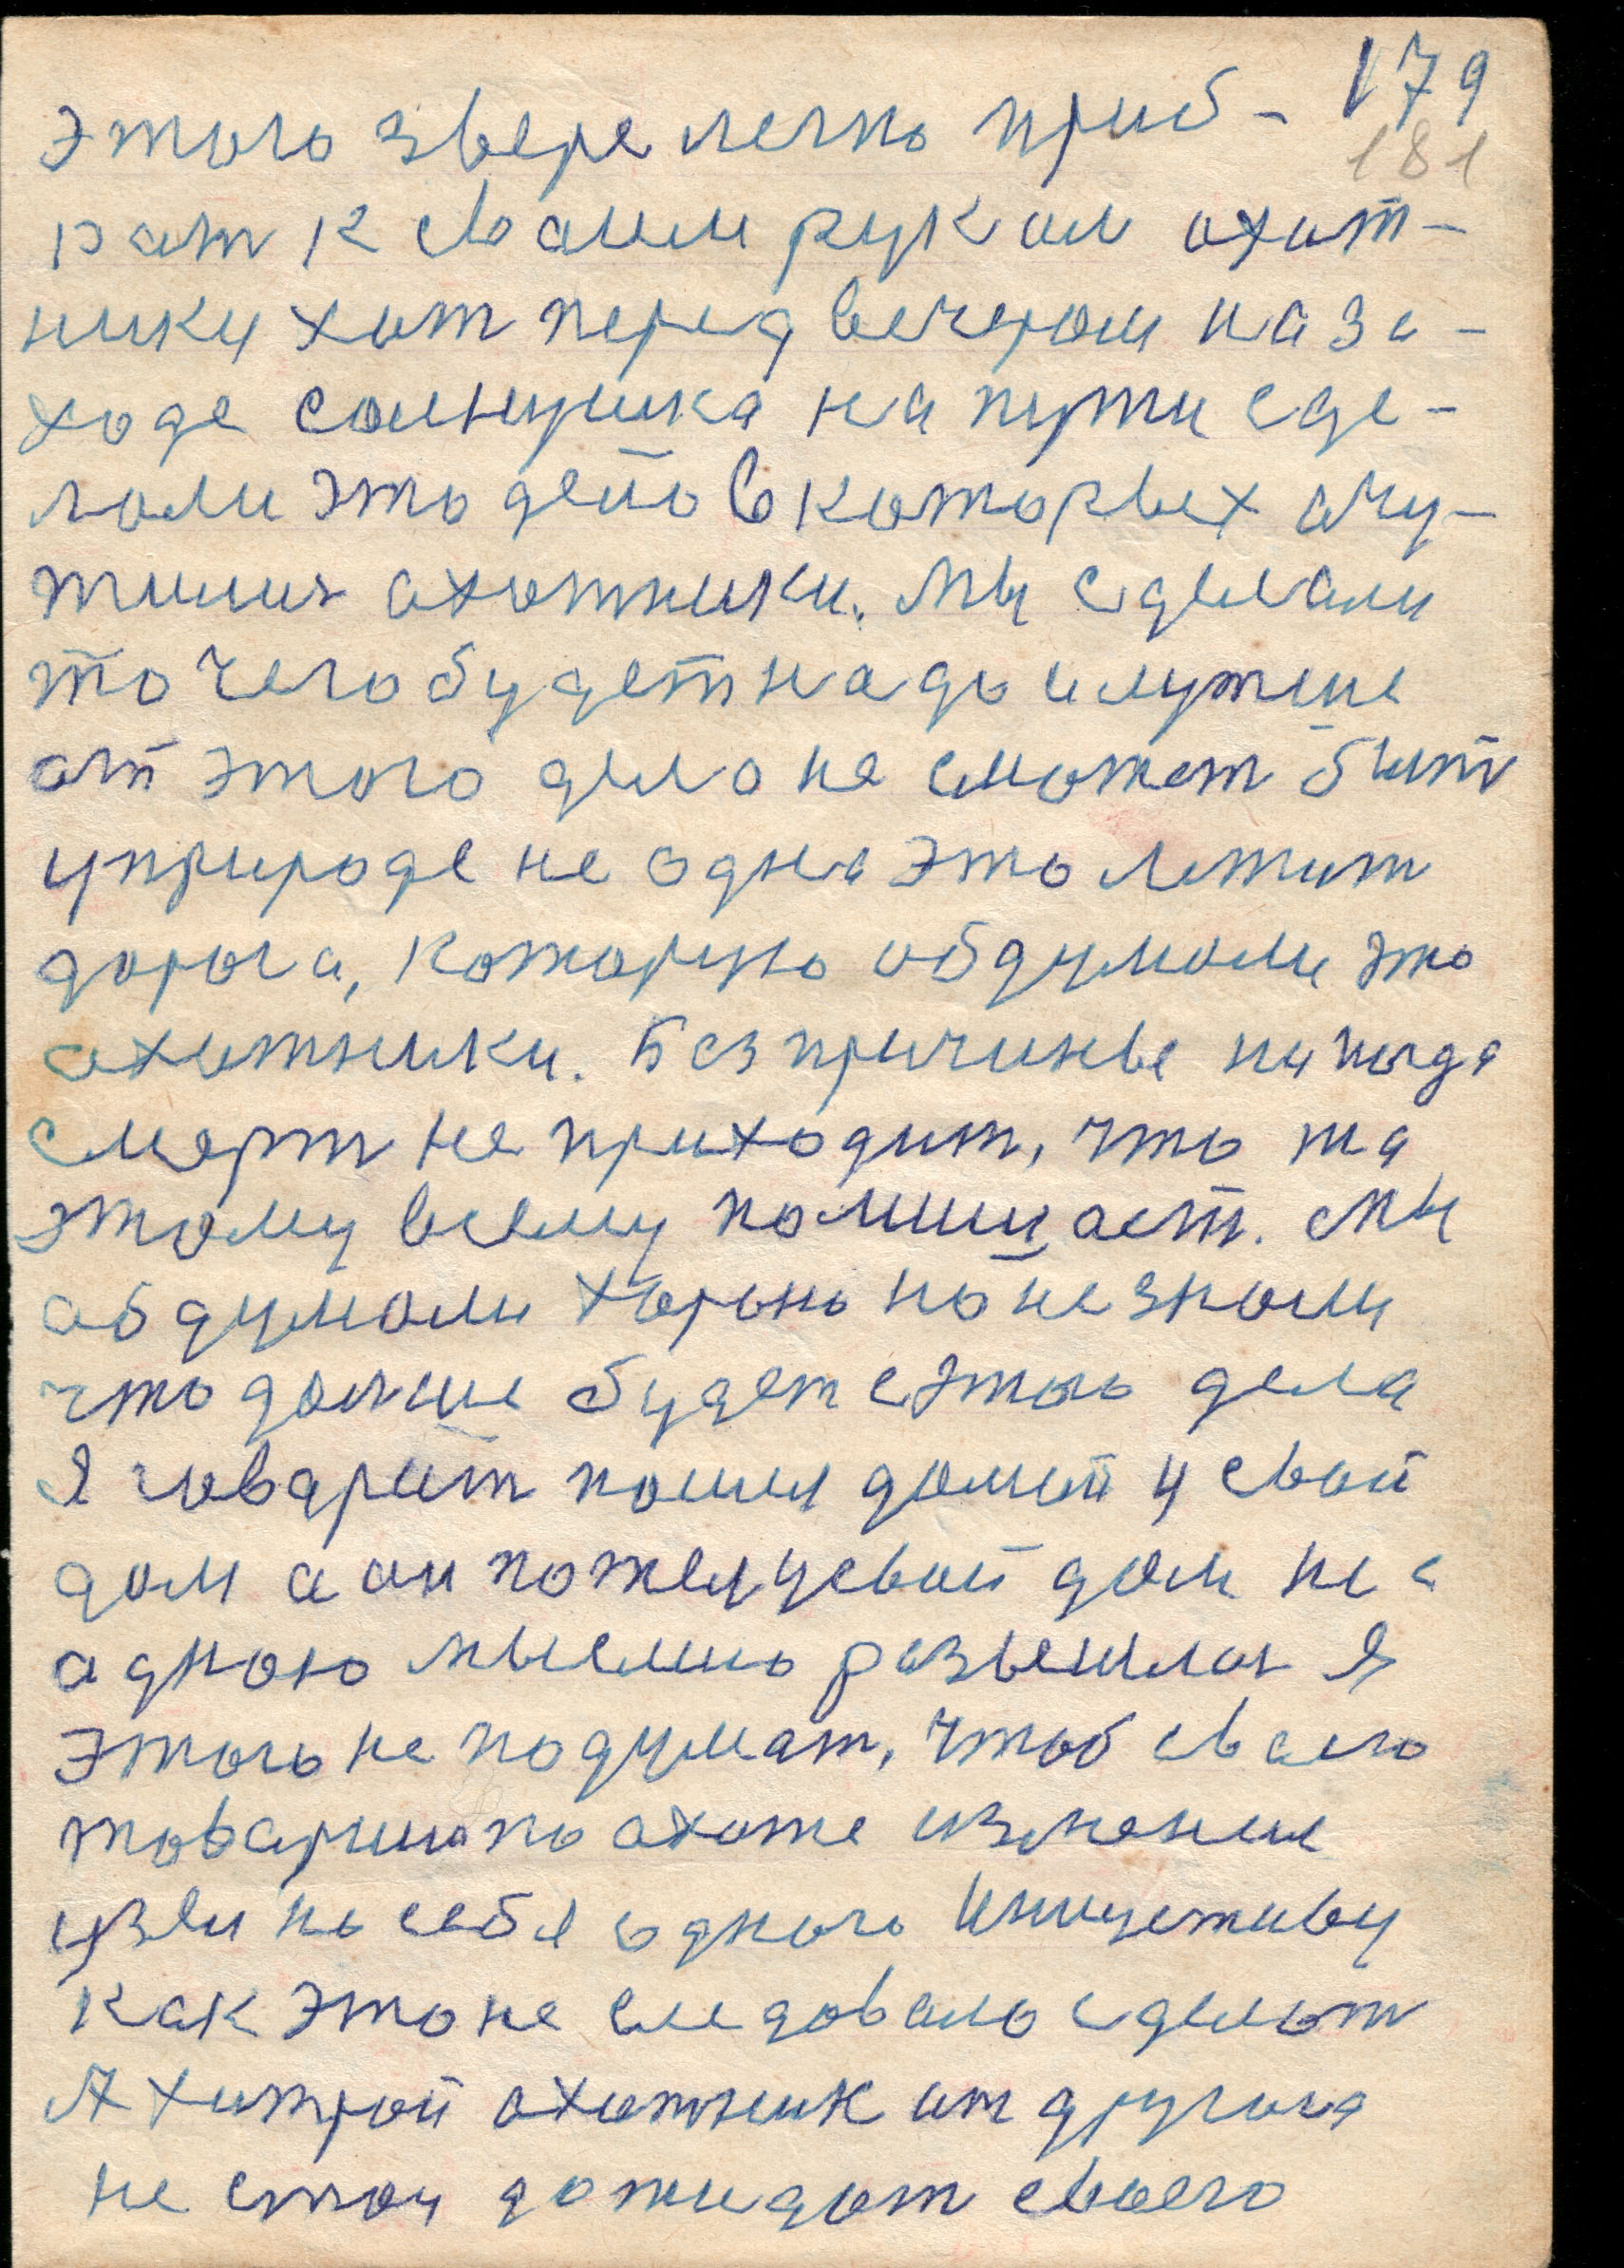 179
181
этого звере легко приб-
рат к сваим рукам охот-
нику хот перед вечером на за-
ходе солнушка на пути сде-
лали это дело в которых очу-
тилис охотники. Мы сделали
то чего будет надо и лутше
от этого дела не сможет быт
уприроде не одна это лежит
дорога, которую обдумали это
охотники. Без причины никогда
смерт не приходит, что та
этому всему помишает. Мы
обдумали хорошо но не знали
что дальше будет сэтого дела
Я говарит пошел домой у свой
дом а он пожел усвой дом не с
адною мыслию развешлис Я
этого не подумат, чтоб сваего
товарища по охоте изменил
узял на себя одного инициетиву
как это не следовало сделат
А хитрой охотник от другога
не стал дожидат своего